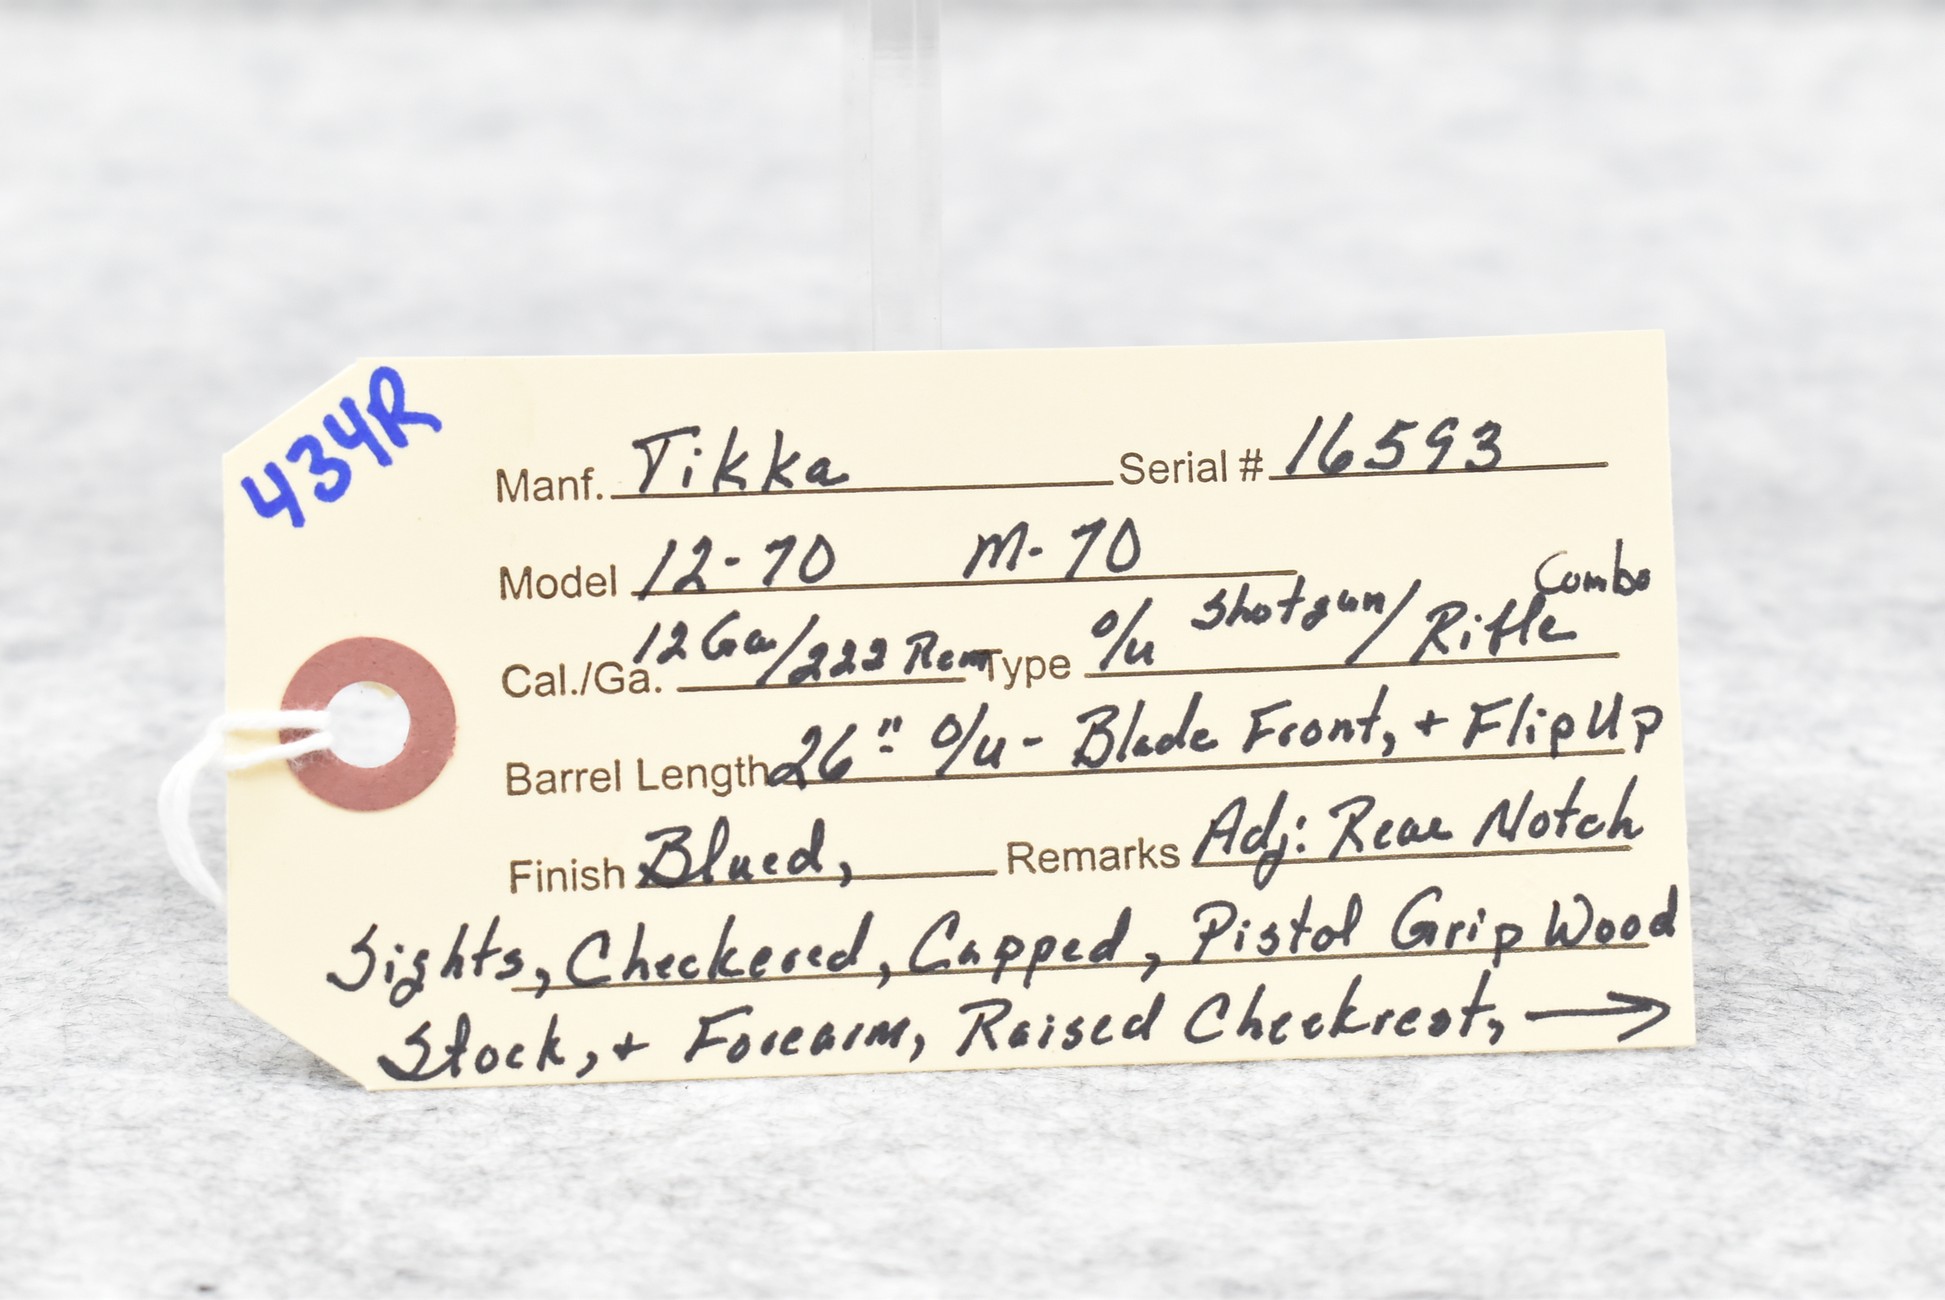 434R
Manf. Tikka Serial # 16593
Model 12-70 M-70
Cal./Ga. 12 Ga/222 Rem Type O/U Shotgun/Rifle Combo
Barrel Length 26" O/U - Blade Front, + Flip Up
Finish Blued, Remarks Adj: Rear Notch
Sights, Checkered, Capped, Pistol Grip Wood
Stock, + Forearm, Raised Cheekrest, →